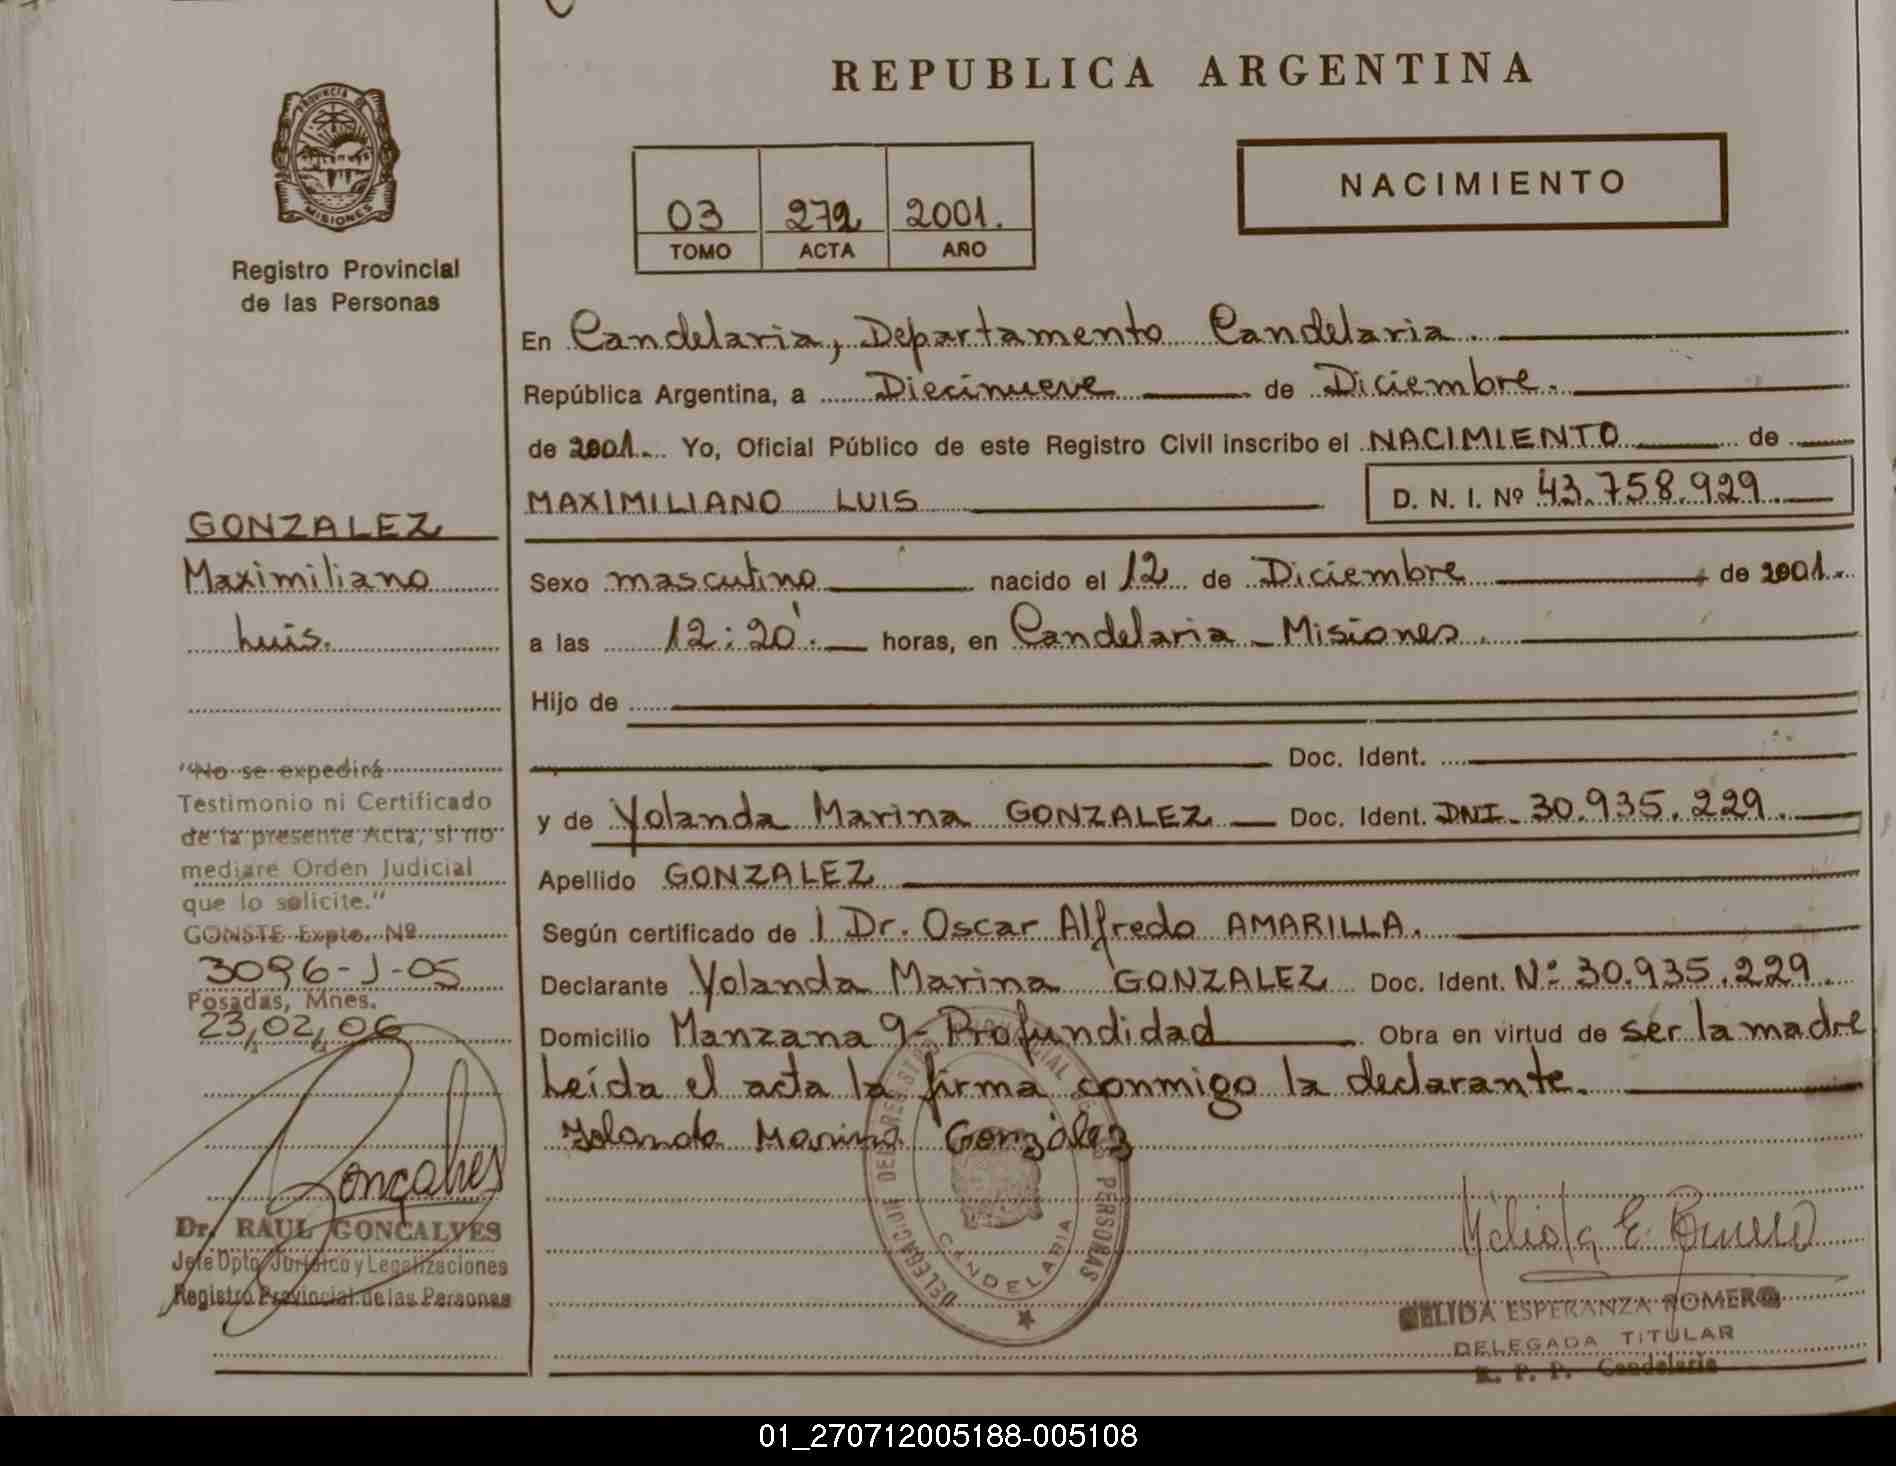 REPUBLICA ARGENTINA
PROVINCIA DE
MISIONES
Registro Provincial
de las Personas
NACIMIENTO
03 272 2001.
TOMO ACTA AÑO
En Candelaria, Departamento Candelaria.
República Argentina, a Diecinueve de Diciembre.
de 2001. Yo, Oficial Público de este Registro Civil inscribo el NACIMIENTO de
MAXIMILIANO LUIS D. N. I. Nº 43.758.929.
Sexo masculino nacido el 12 de Diciembre de 2001.
a las 12:20'. horas, en Candelaria - Misiones.
Hijo de
Doc. Ident.
y de Yolanda Marina GONZALEZ Doc. Ident. DNI. 30.935.229.
Apellido GONZALEZ
Según certificado de l Dr. Oscar Alfredo AMARILLA.
Declarante Yolanda Marina GONZALEZ Doc. Ident. Nº 30.935.229.
Domicilio Manzana 9 - Profundidad Obra en virtud de ser la madre
Leída el acta la firma conmigo la declarante.
Yolanda Marina González
GONZALEZ
Maximiliano
Luis.
"No se expedirá
Testimonio ni Certificado
de la presente Acta, si no
mediare Orden Judicial
que lo solicite."
CONSTE Expte. Nº
3096-J-05
Posadas, Mnes.
23,02,06
Goncalves
Dr. RAUL GONÇALVES
Jefe Dpto. Jurídico y Legalizaciones
Registro Provincial de las Personas
DELEGACION DEL REGISTRO PROVINCIAL DE LAS PERSONAS
CANDELARIA
NELIDA ESPERANZA ROMERO
DELEGADA TITULAR
R. P. P. Candelaria
01_270712005188-005108